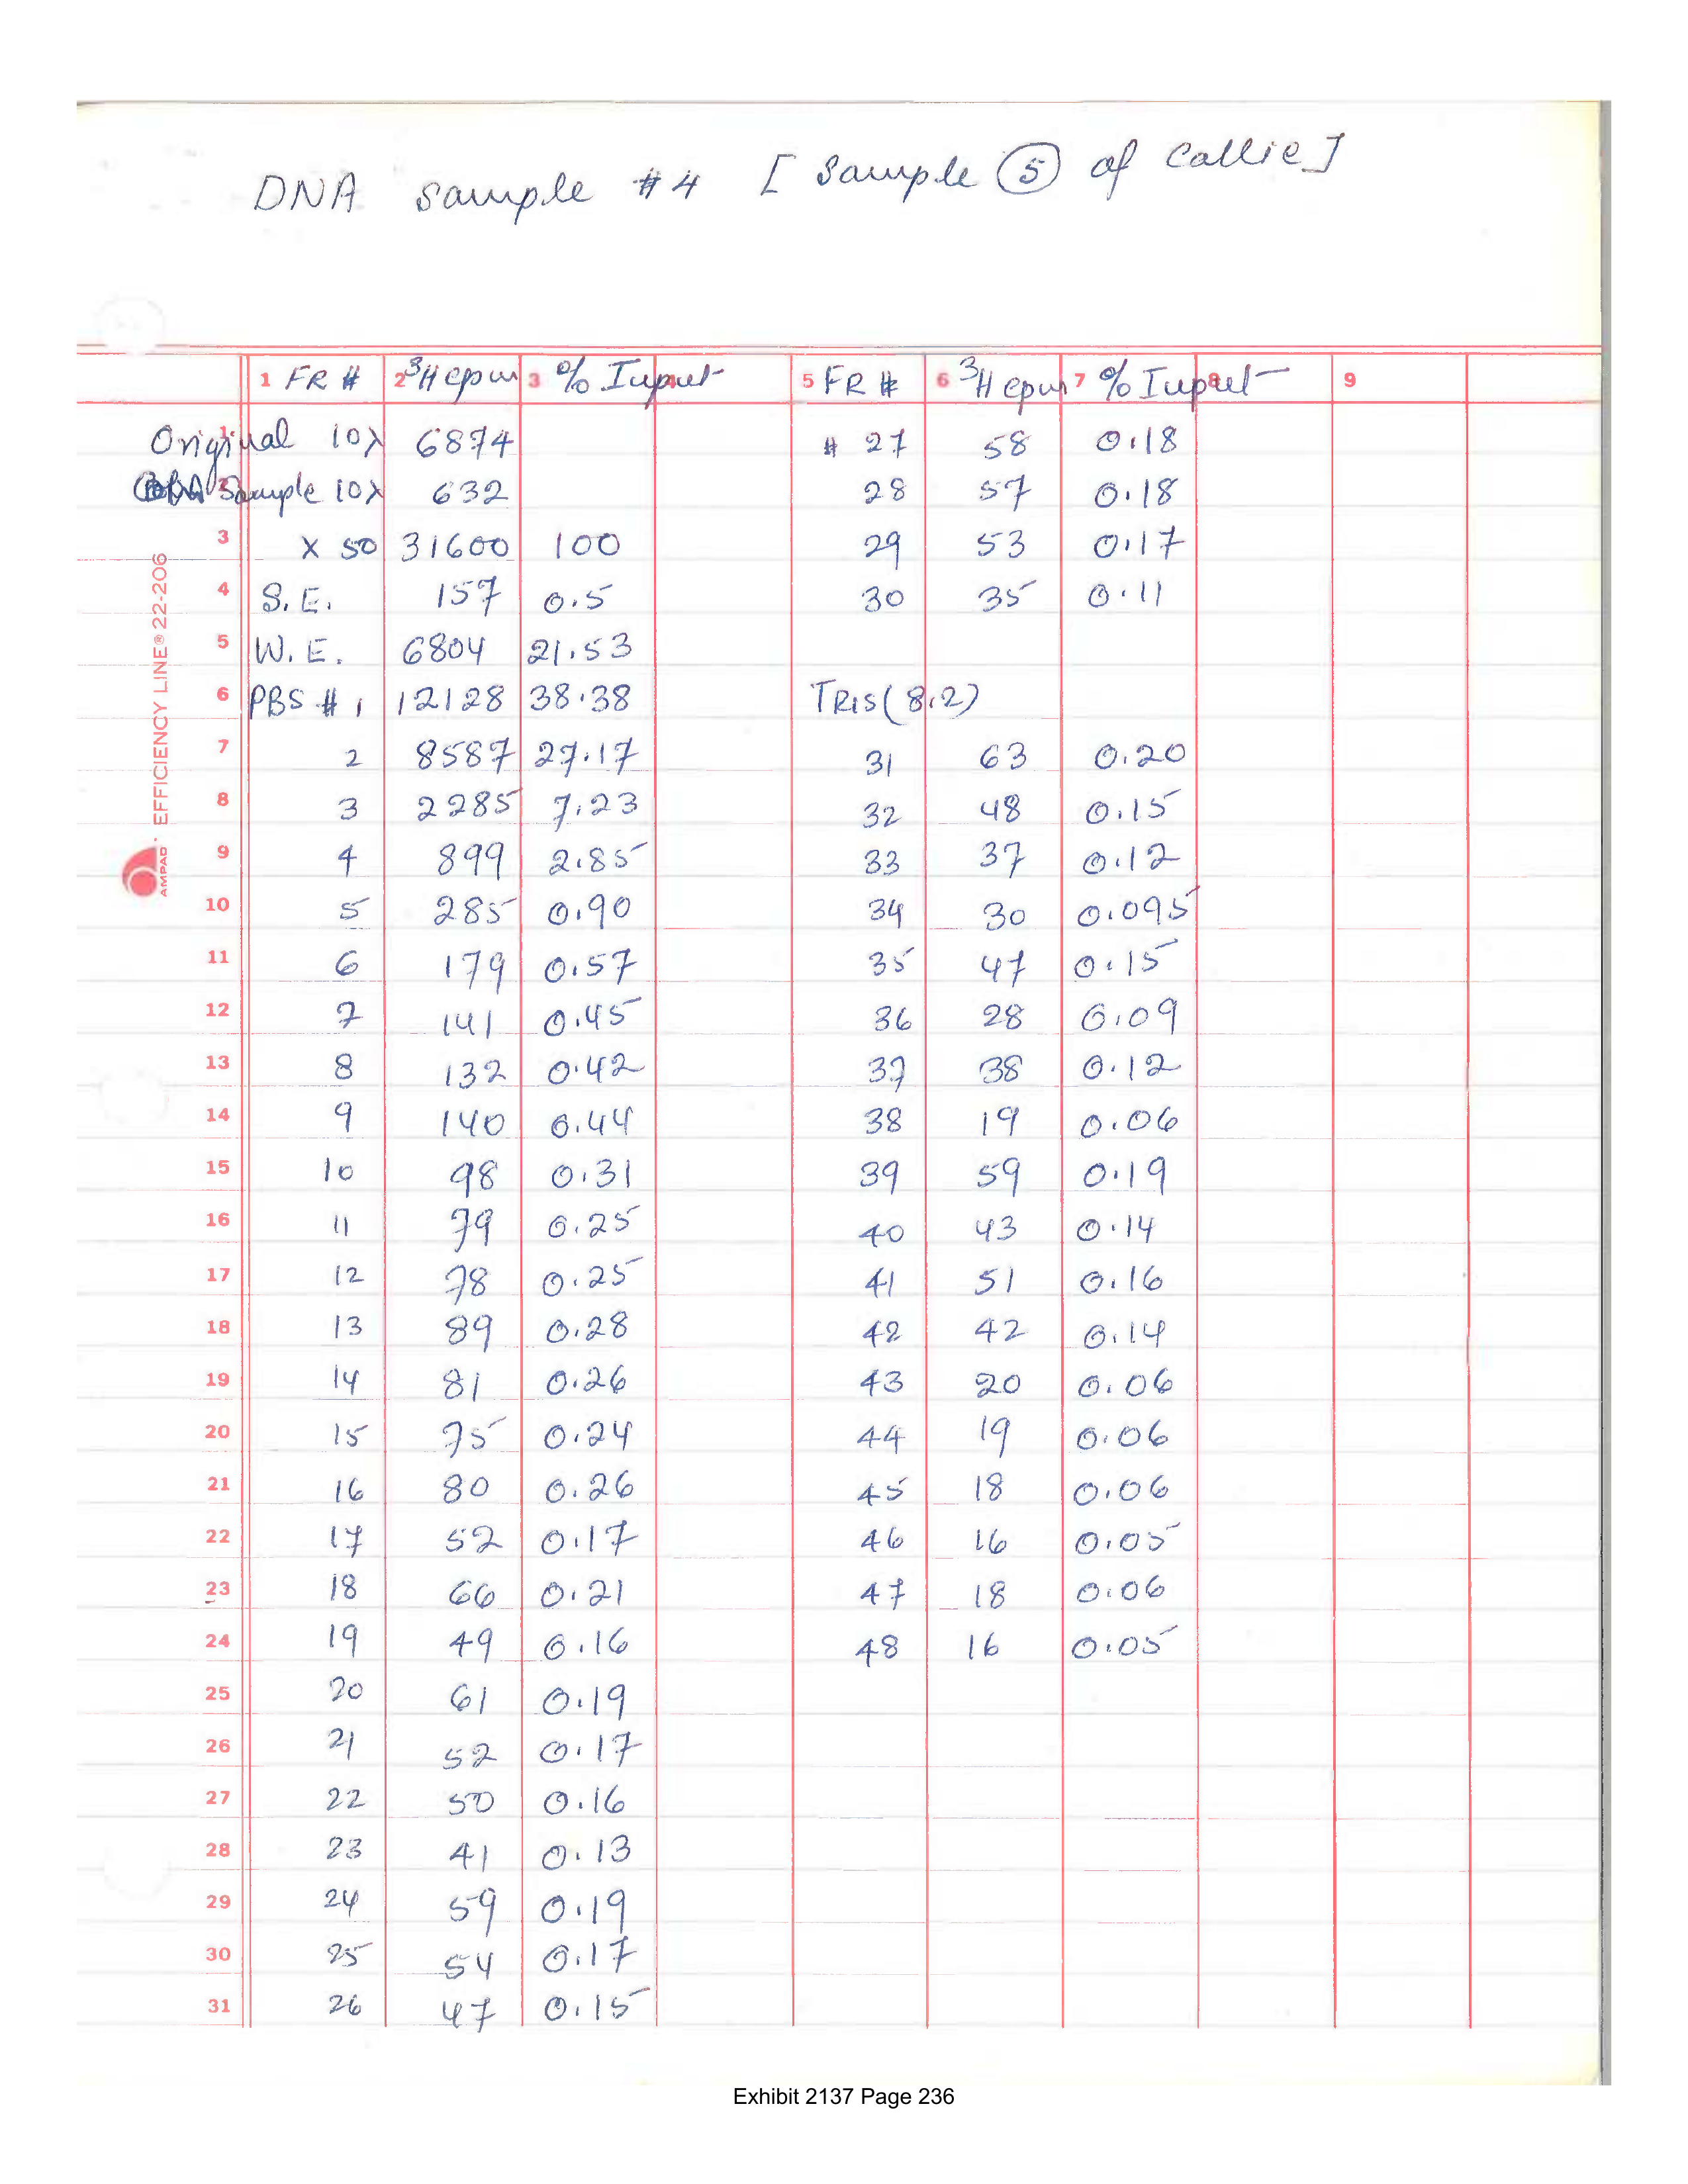 DNA sample #4 [Sample ⑤ of Callie]
1 FR # 2 ³H cpm 3 % Input 4 5 FR # 6 ³H cpm 7 % Input 8 9
1 Original 10λ 6874 # 27 58 0.18
2 Sample 10λ 632 28 57 0.18
3 X 50 31600 100 29 53 0.17
4 S.E. 157 0.5 30 35 0.11
5 W.E. 6804 21.53
6 PBS # 1 12128 38.38 TRIS (8.2)
7 2 8587 27.17 31 63 0.20
8 3 2285 7.23 32 48 0.15
9 4 899 2.85 33 37 0.12
10 5 285 0.90 34 30 0.095
11 6 179 0.57 35 47 0.15
12 7 141 0.45 36 28 0.09
13 8 132 0.42 37 38 0.12
14 9 140 0.44 38 19 0.06
15 10 98 0.31 39 59 0.19
16 11 79 0.25 40 43 0.14
17 12 78 0.25 41 51 0.16
18 13 89 0.28 42 42 0.14
19 14 81 0.26 43 20 0.06
20 15 75 0.24 44 19 0.06
21 16 80 0.26 45 18 0.06
22 17 52 0.17 46 16 0.05
23 18 66 0.21 47 18 0.06
24 19 49 0.16 48 16 0.05
25 20 61 0.19
26 21 52 0.17
27 22 50 0.16
28 23 41 0.13
29 24 59 0.19
30 25 54 0.17
31 26 47 0.15
AMPAD EFFICIENCY LINE® 22-206
Exhibit 2137 Page 236